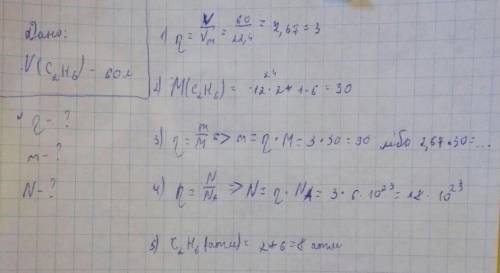 Дано:
V(C₂H₆) - 60л
η - ?
m - ?
N - ?
1) η = V/Vm = 60/22,4 = 2,67 = 3
2) M(C₂H₆) = 12·2+1·6 = 30
24
3) η = m/M => m = η·M = 3·30 = 90 або 2,67·30=...
4) η = N/NA => N = η·NA = 3·6·10²³ = 18·10²³
5) C₂H₆(атм) = 2+6=8 атм